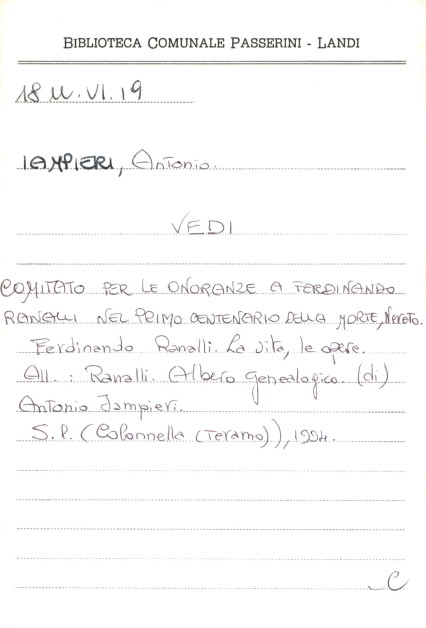 BIBLIOTECA COMUNALE PASSERINI - LANDI
18 U. VI. 19
IAMPIERI, Antonio.
VEDI
COMITATO PER LE ONORANZE A FERDINANDO
RANALLI NEL PRIMO CENTENARIO DELLA MORTE, Nereto.
Ferdinando Ranalli. La vita, le opere.
All. : Ranalli. Albero genealogico. (di)
Antonio Iampieri.
S. l. (Colonnella (Teramo)), 1994.
C